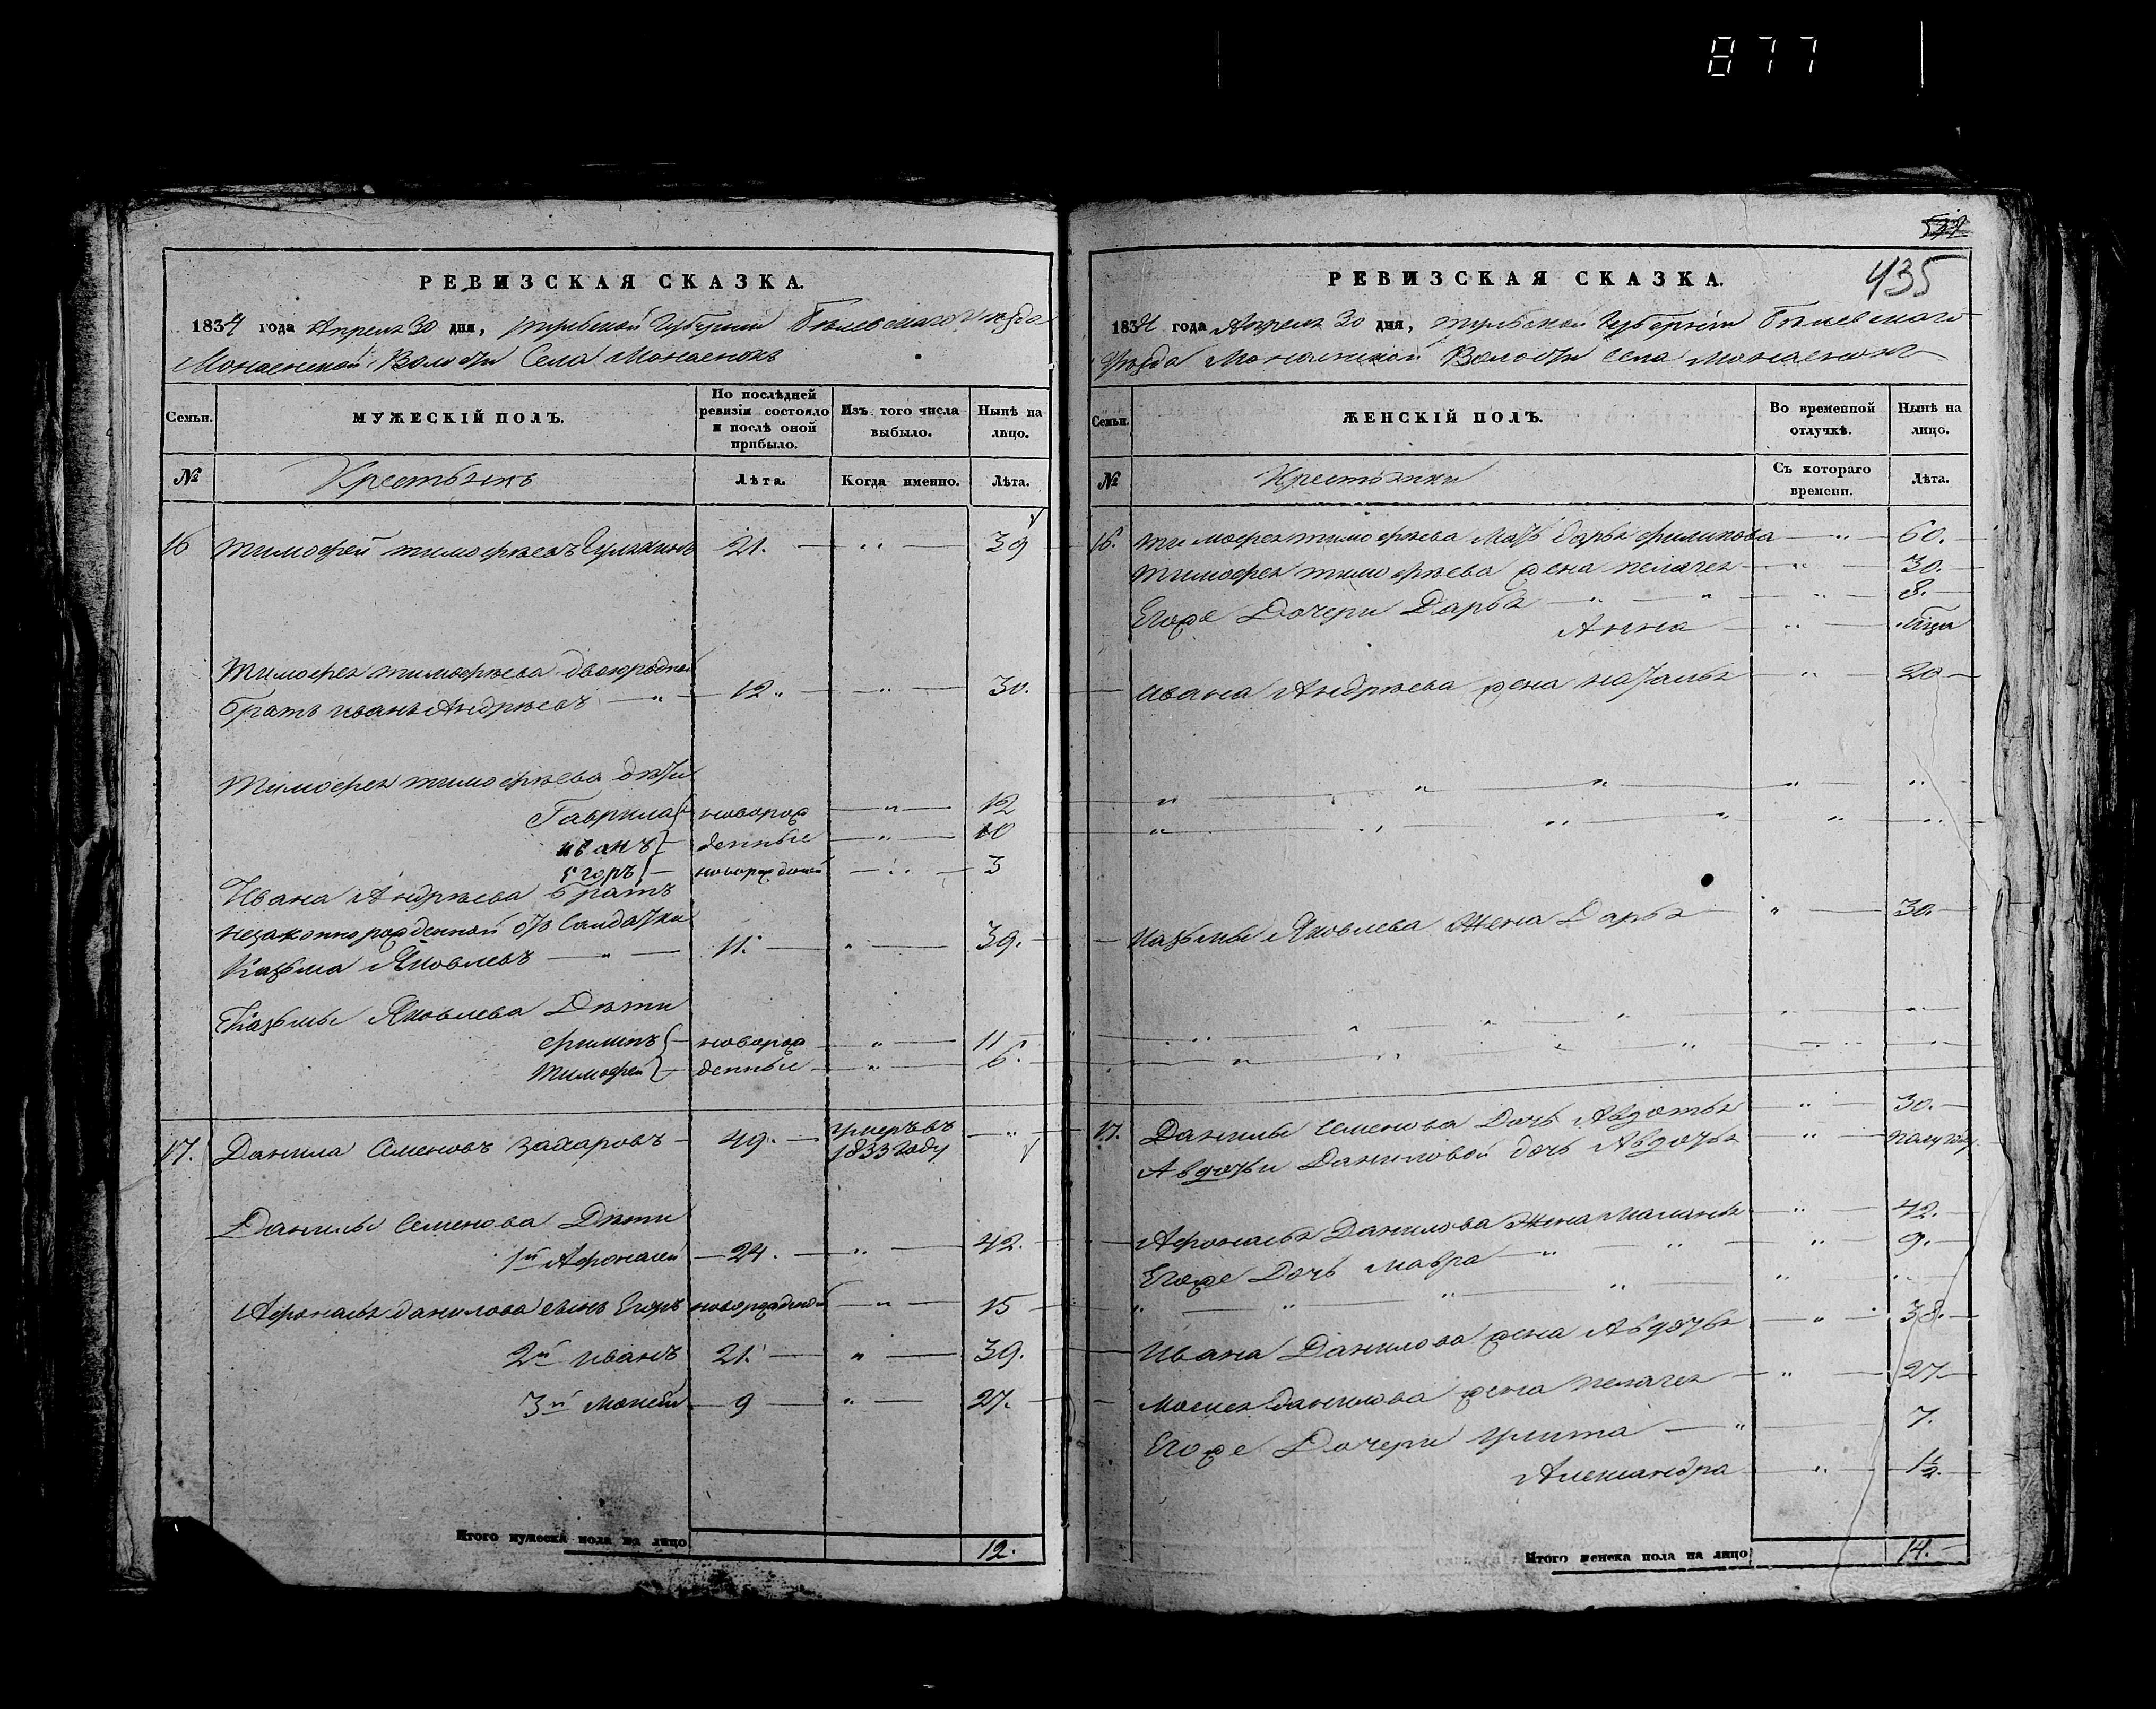 877
РЕВИЗСКАЯ СКАЗКА.
1834 года Апреля 30 дня, тульской Губернии Белевского уезда
Монаенской Волости Села Монаенокъ
Семьи. МУЖЕСКІЙ ПОЛЪ. По послѣдней ревизіи состояло и послѣ оной прибыло. Изъ того числа выбыло. Нынѣ на лицо.
№ Крестьянъ Лѣта. Когда именно. Лѣта.
16 тимофей тимофѣевъ 21. 39
Тимофея тимофѣева двоюродной
братъ иванъ Андрѣевъ 12. 30.
Тимофея тимофѣева дѣти
Гаврила новорож 12
иванъ денные 10
Егоръ новорожденой 3
Ивана Андрѣева братъ
незаконнорожденной отъ Салдатки
Казьма Яковлевъ 11. 39.
Казьмы Яковлева Дѣти
филипъ новорож 11
тимофей денные 6.
17. Данила Семеновъ Захаровъ 49. умеръ въ
1833 году
Данилы Семенова Дѣти
1й Афонасей 24. 42.
Афонасья данилова сынъ Егоръ новорожденой 15
2й иванъ 21. 39.
3й Мосей 9 27.
Итого мужеска пола на лицо 12.
435
РЕВИЗСКАЯ СКАЗКА.
1834 года Апреля 30 дня, тульской Губерніи Белевского
Уезда Монаенской Волости Села Монаенокъ
Семьи. ЖЕНСКІЙ ПОЛЪ. Во временной отлучкѣ. Нынѣ на лицо.
№ Крестьянки Съ котораго времени. Лѣта.
16. тимофея тимофѣева Мать дарья филипова 60.
Тимофея тимофѣева жена пелагея 30.
Егоже Дочери Дарья 8.
Анна
ивана Андрѣева жена наталья 20
Казьмы Яковлева Жена Дарья 30.
17. Данилы Семенова Дочь Авдотья 30.
Авдотьи Даниловой дочь Авдотья полугоду
Афонасья Данилова Жена маланья 42.
Егоже Дочь мавра 9.
Ивана Данилова жена Авдотья 38.
Мосея данилова жена пелагея 27
Егоже Дочери улита 7.
Александра 1½.
Итого женска пола на лицо 14.